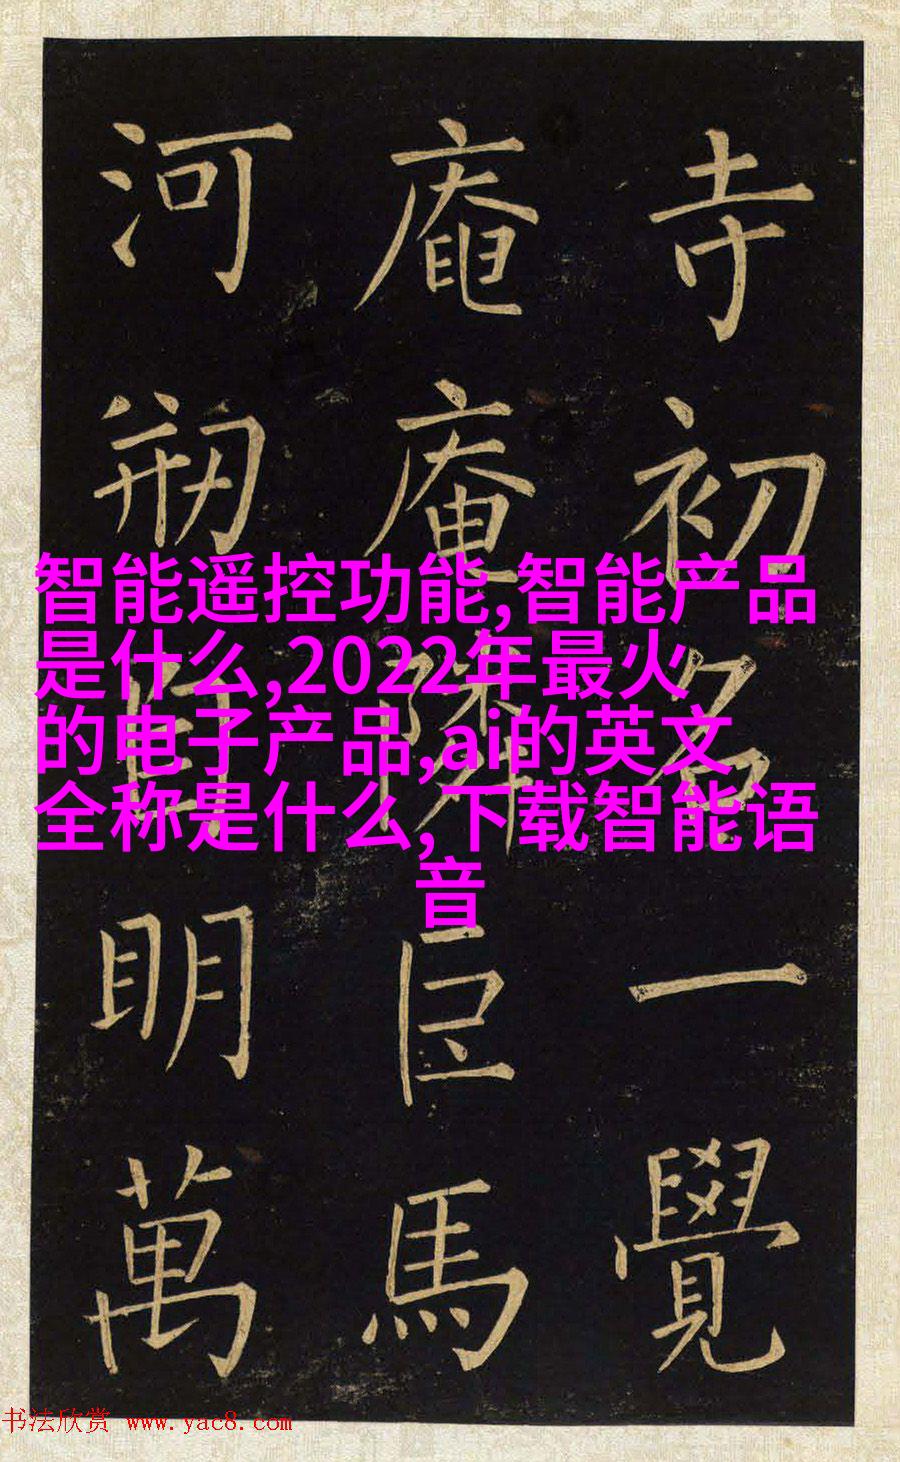 寺初名一覺
庵庵隣臣馬
河剏明萬
智能遥控功能,智能产品
是什么,2022年最火
的电子产品,ai的英文
全称是什么,下载智能语
音
书法欣赏 www.yac8.com